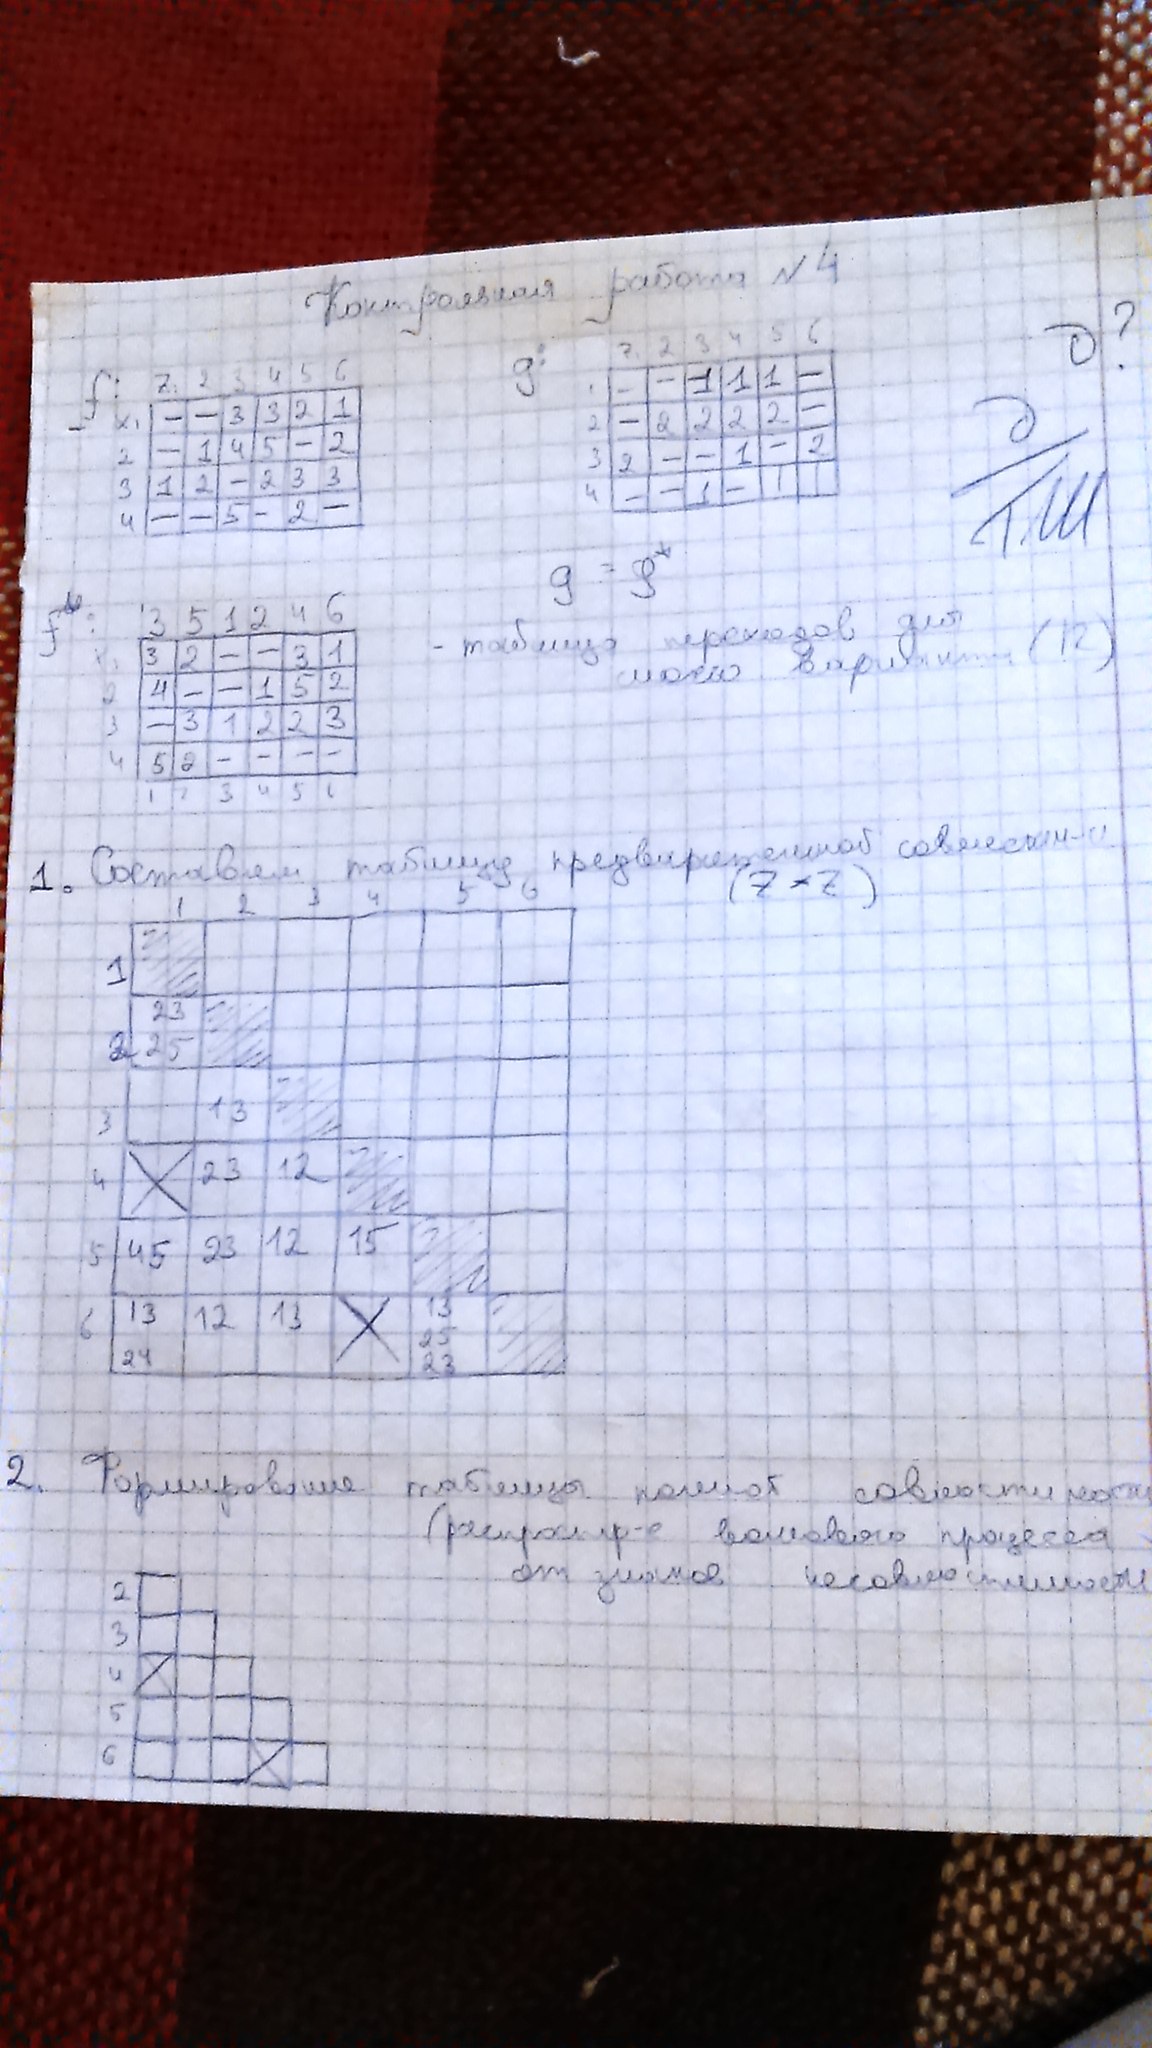 Контрольная работа №4
f: Z1 2 3 4 5 6
x1 — — 3 3 2 1
2 — 1 4 5 — 2
3 1 2 — 2 3 3
4 — — 5 — 2 —
g: Z1 2 3 4 5 6
1 — — 1 1 1 —
2 — 2 2 2 2 —
3 2 — — 1 — 2
4 — — 1 —
?
g = g*
f*: 3 5 1 2 4 6
x1 3 2 — — 3 1
2 4 — — 1 5 2
3 — 3 1 2 2 3
4 5 2 — — — —
1 2 3 4 5 6
- таблица переходов для
моего варианта (12)
1. Составляем таблицу предварительной совместим-и
(Z × Z)
1 2 3 4 5 6
1
23
2 25
3 13
4 23 12
5 45 23 12 15
6 13 12 13 13
24 25
23
2. Формирование таблицы полной совместимости
(распростр-е волнового процесса
от знаков несовместимости
2
3
4
5
6